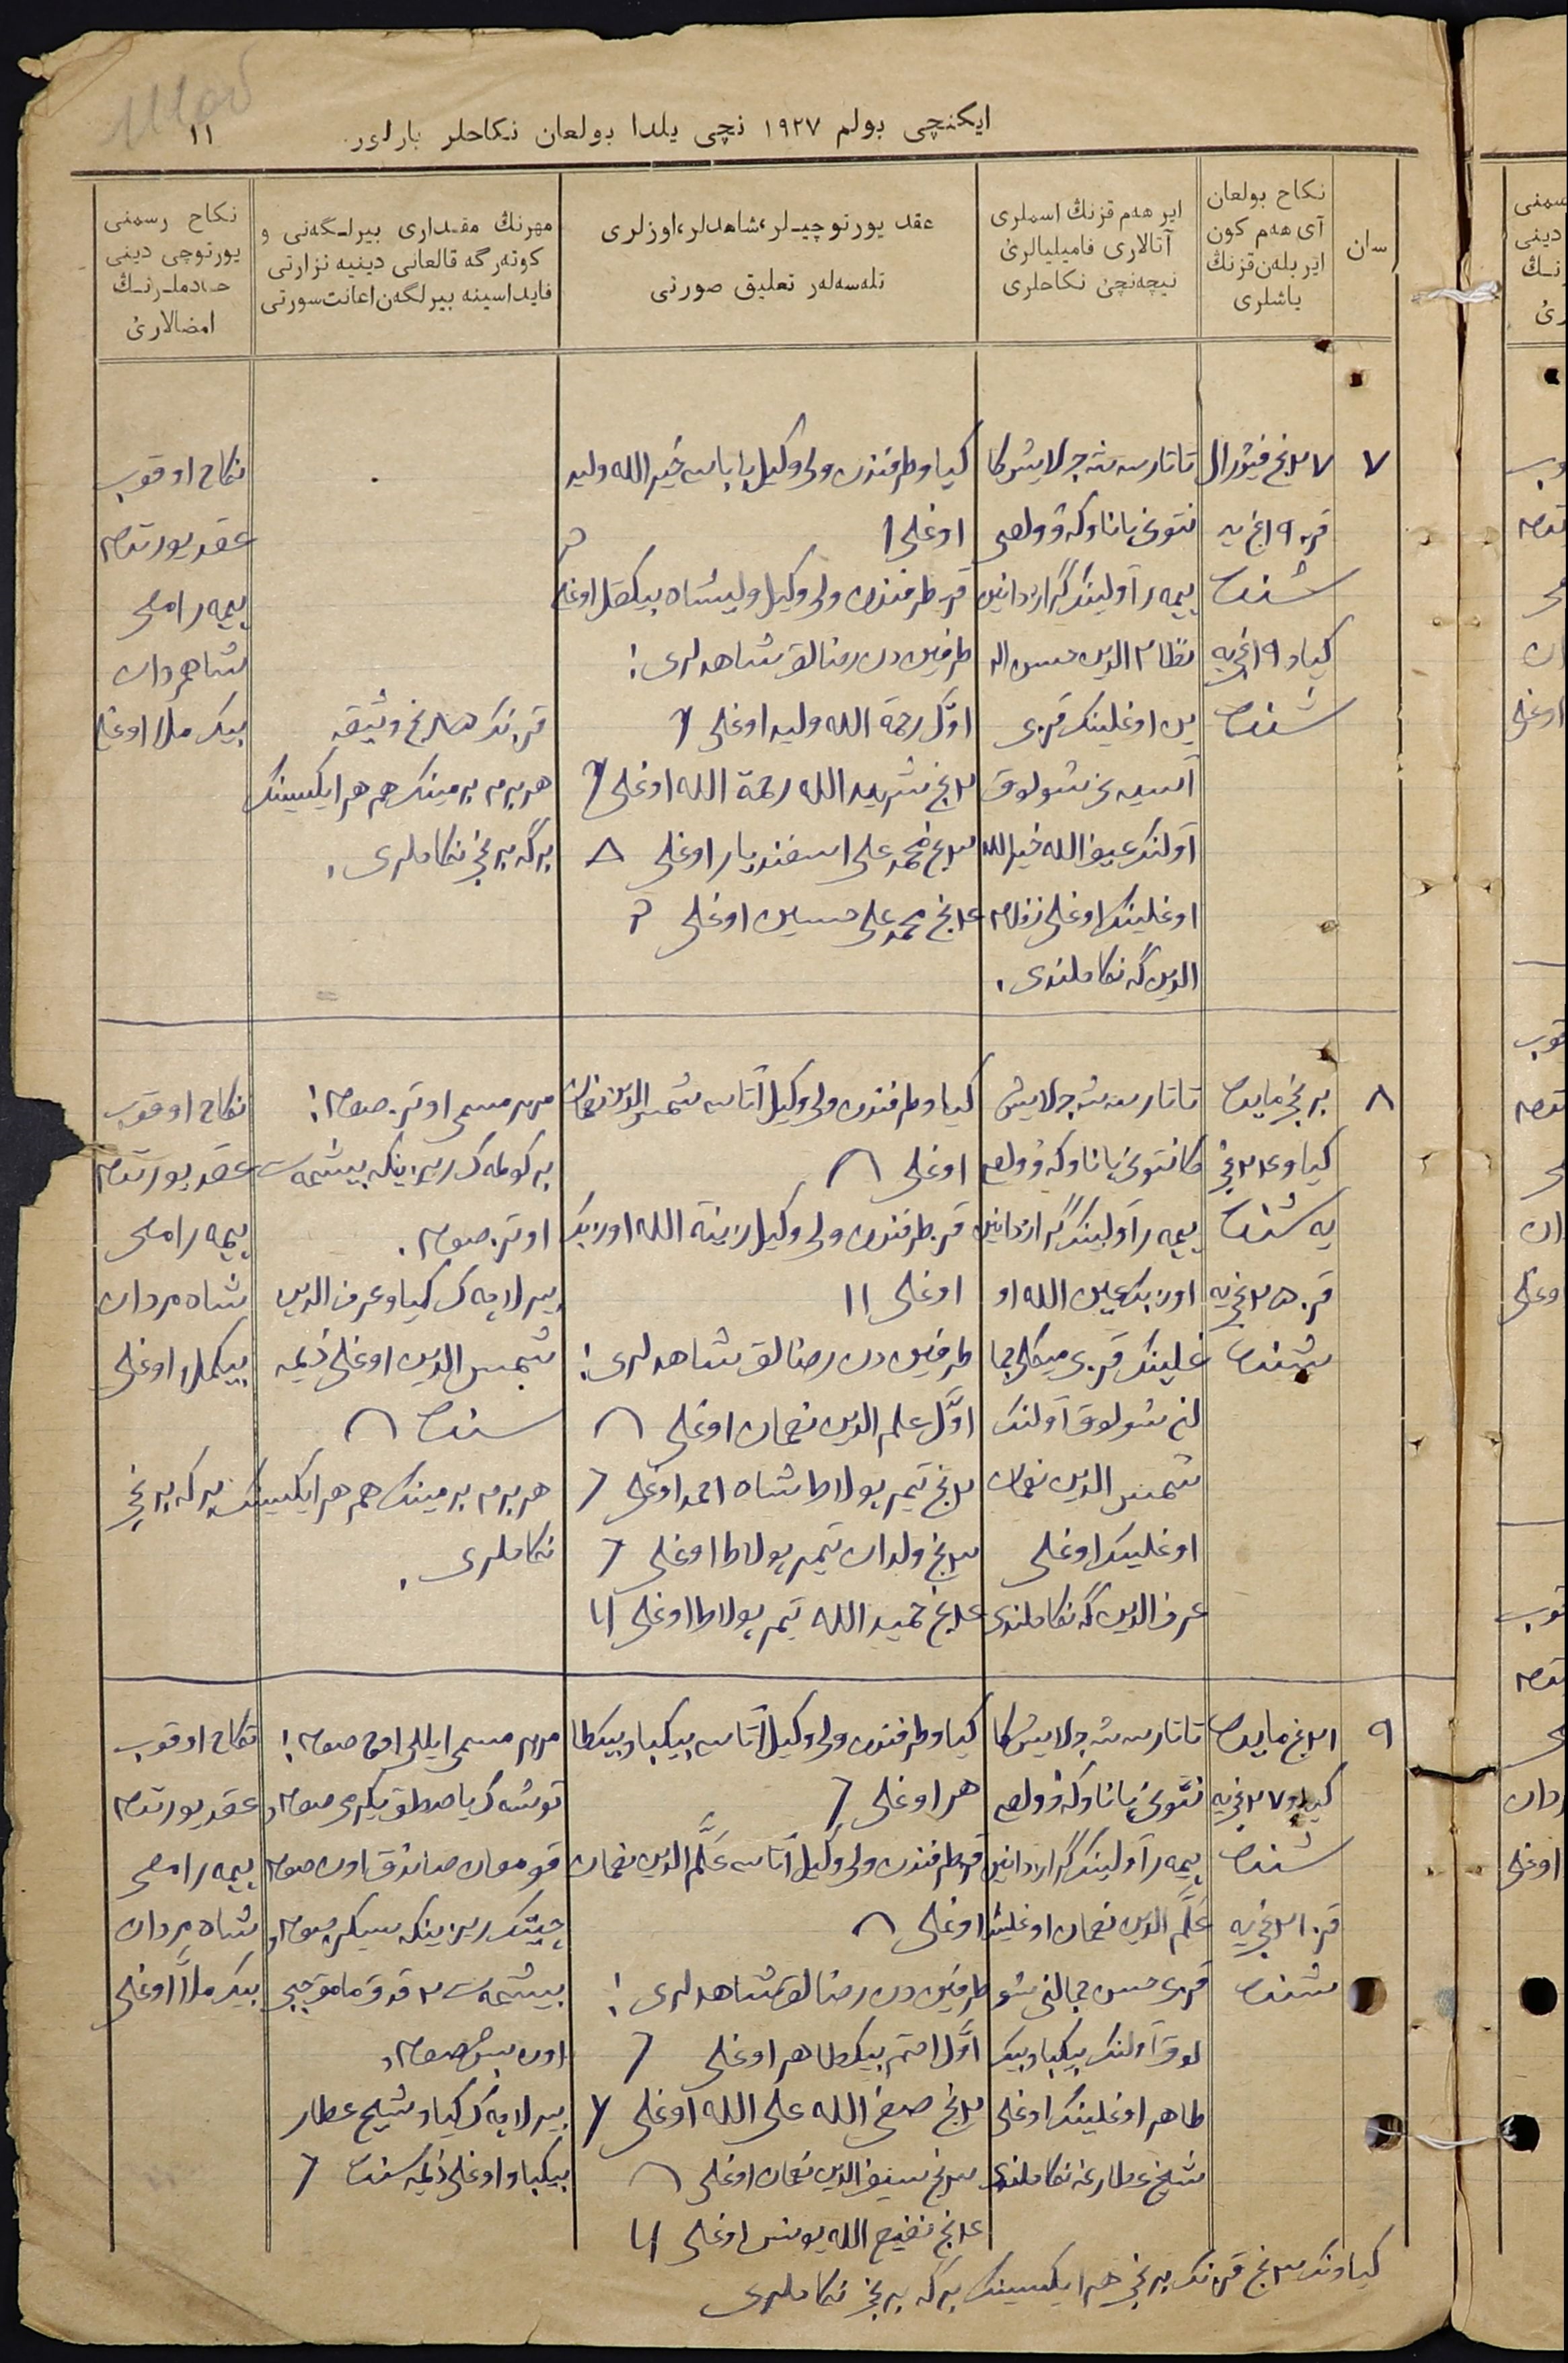 ایكنچی بولم ١٩٢٧ نچی یلدا بولعان نكاحلر بارلور.
١١
سان
نكاح بولعان
آی هەم كون
ایر بلەن قزنڭ
یاشلری
ایر هەم قزنڭ اسملری
آتالاری فامیلیالری
نیچەنچی نكاحلری
عقد یورتوچیـلر، شاهدلر، اوزلری
تلەسەلەر تعلیق صورتی
مهرنڭ مقداری بیرلـگەنی و
كوتەرگە قالعانی دینیه نزارتی
فایداسینه بیرلگەن اعانت سورتی
نكاح رسمنی
یورتوچی دینی
خادملـرنـڭ
امضالاری
٧
٢٧ نچی فیورال
قز ١٩ نچی یه
شندە
كیاو ١٩ نچی یه
شندە
تاتارستان جولایش كا
نتونی یاناوكە ؤولصی
یمەر آولینڭ گراژدانین
نظام الدین حسن الد
ین اوغلینڭ قزی
آسیه نی شولوق
آولنڭ عیض الله خیرالله
اوغلینڭ اوغلی نظام
الدین گە نكاحلندی.
كیاو طرفندن ولی وكیل باباسی خیرالله ولید
اوغلی
قز طرفندن ولی وكیل ولیشاه بیكمل اوغلی
طرفین دن رضالق شاهدلری:
اوّل رحمة الله ولید اوغلی
٢ نچی شرید الله رحمة الله اوغلی
٣ نچی محمدعلی اسفندیار اوغلی
٤ نچی محمدعلی حسین اوغلی
قزنڭ ٥ نچی وثیقه
هر برم برمینڭ هم هر ایكیسینڭ
برگە برنچی نكاحلری.
نكاح اوقوب
عقد یورتدم
یمەر امامی
شاهمردان
بیكملا اوغلی
٨
برنچی مایدە
كیاو ٢٤ نچی
یه شندە
قز ٢٥ نچی یه
شندە
تاتارستان جولایش
كانتونی یاناوكە ؤولصی
یمەر آولینڭ گراژدانین
اوزبك عین الله او
غلینڭ قزی میكلی جما
لنی شولوق آولنڭ
شمس الدین نعمان
اوغلینڭ اوغلی
عرف الدین گە نكاحلندی
كیاو طرفندن ولی وكیل آتاسی شمس الدین نعمان
اوغلی
قز طرفندن ولی وكیل زینة الله اوزبك
اوغلی
طرفین دن رضالق شاهدلری:
اوّل علم الدین نعمان اوغلی
٢ نچی تیمر بولاط شاه احمد اوغلی
٣ نچی ولدان تیمر بولاط اوغلی
٤ نچی حمید الله تیمر بولاط اوغلی
مهر مسمی اوتز صوم:
بر كولمەك رزینكه بیشمەت
اوتز صوم.
بیرلاچەك كیاو عرف الدین
شمس الدین اوغلی ذیمه
سندە
هر برم برمینڭ هم هر ایكیسینڭ برگە برنچی
نكاحلری.
نكاح اوقوب
عقد یورتدم
یمەر امامی
شاه مردان
بیكملا اوغلی
٩
٢١ نچی مایدە
كیاو ٢٧ نچی یه
شندە
قز ٢١ نچی یه
شندە
تاتارستان جولایش كا
نتونی یاناوكە ؤولصی
یمەر آولینڭ گراژدانین
علم الدین نعمان اوغلینڭ
قزی حسن جمالنی شو
لوق آولنڭ بیكباو بیك
طاهر اوغلینڭ اوغلی
شیخ عطارغه نكاحلندی
كیاو طرفندن ولی وكیل آتاسی بیكباو بیكطا
هر اوغلی
قز طرفندن ولی وكیل آتاسی علم الدین نعمان
اوغلی
طرفین دن رضالق شاهدلری:
اوّل احتم بیكطاهر اوغلی
٢ نچی صفی الله علی الله اوغلی
٣ نچی سیف الدین نعمان اوغلی
٤ نچی نفیح الله یونس اوغلی
مهر مسمی ایللی اوچ صوم:
توشەك یاصطق یكرمی صوم،
قومغان صاندق اون صوم
چیتیك رزینكه سیكز صوم،
بیشمەت ٢ قدق مامقچبی
اون بیش صوم،
بیرلاچەك كیاو شیخ عطار
بیكباو اوغلی ذیمه سندە
نكاح اوقوب
عقد یورتدم
یمەر امامی
شاه مردان
بیكملا اوغلی
كیاونڭ ٣ نچی قزنڭ برنچی هر ایكیسینڭ برگە برنچی نكاحلری